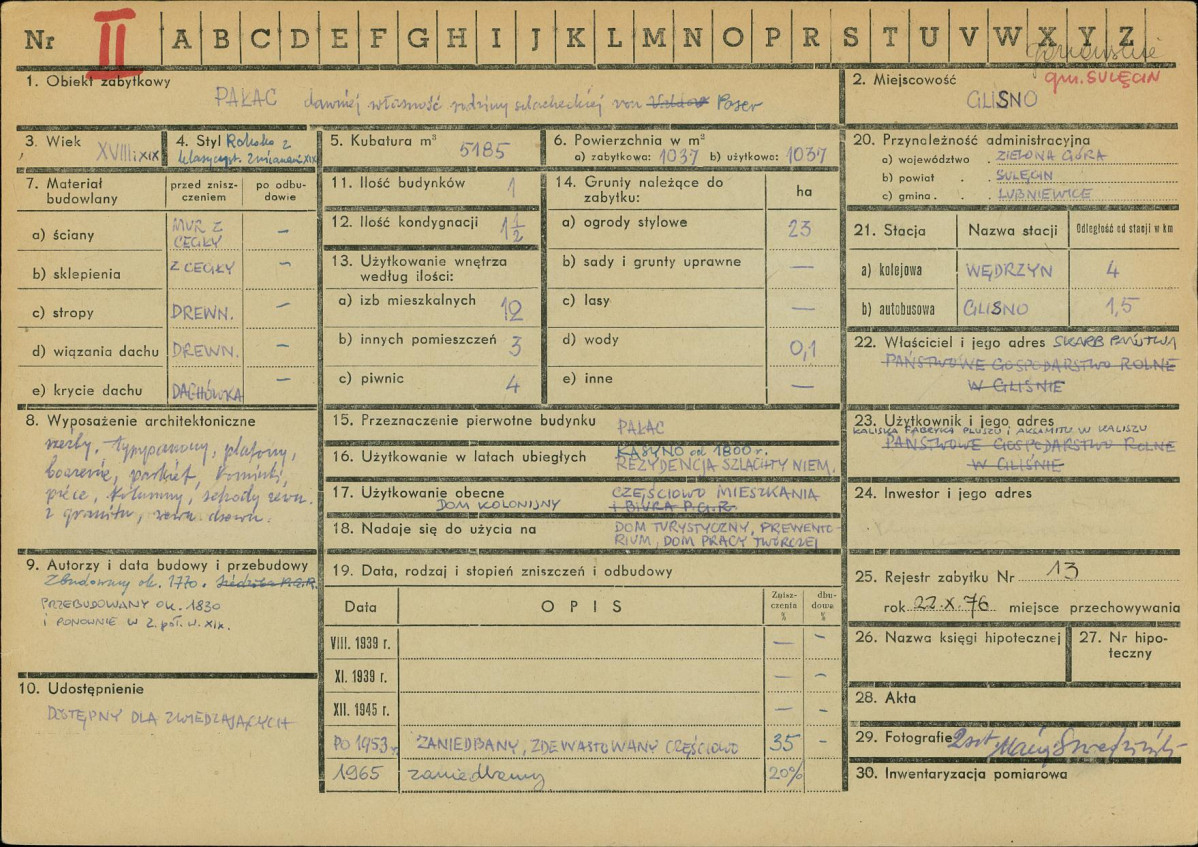 Nr II A B C D E F G H I J K L M N O P R S T U V W X Y Z
gm. SULĘCIN
1. Obiekt zabytkowy
PAŁAC dawniej własność rodziny szlacheckiej von Poser
2. Miejscowość
GLISNO
3. Wiek
XVIII i XIX
4. Styl Rokoko z
klasycyst. zmianami XIX
5. Kubatura m³ 5185
6. Powierzchnia w m²
a) zabytkowa: 1037 b) użytkowo: 1037
20. Przynależność administracyjna
a) województwo . ZIELONA GÓRA
b) powiat . . SULĘCIN
c) gmina . . . LUBNIEWICE
7. Materiał budowlany
przed zniszczeniem
po odbudowie
a) ściany MUR Z CEGŁY –
b) sklepienia Z CEGŁY –
c) stropy DREWN. –
d) wiązania dachu DREWN. –
e) krycie dachu DACHÓWKA –
11. Ilość budynków 1
12. Ilość kondygnacji 1½
13. Użytkowanie wnętrza
według ilości:
a) izb mieszkalnych 12
b) innych pomieszczeń 3
c) piwnic 4
14. Grunty należące do
zabytku: ha
a) ogrody stylowe 23
b) sady i grunty uprawne —
c) lasy —
d) wody 0,1
e) inne —
21. Stacja Nazwa stacji Odległość od stacji w km
a) kolejowa WĘDRZYN 4
b) autobusowa GLISNO 1,5
22. Właściciel i jego adres SKARB PAŃSTWA
PAŃSTWOWE GOSPODARSTWO ROLNE
W GLIŚNIE
8. Wyposażenie architektoniczne
rzeźby, tympanony, plafony,
boazerie, parkiet, kominki,
piece, kolumny, schody zewn.
z granitu, wewn. drewn.
15. Przeznaczenie pierwotne budynku PAŁAC
16. Użytkowanie w latach ubiegłych KASYNO od 1800 r.
REZYDENCJA SZLACHTY NIEM.
17. Użytkowanie obecne CZĘŚCIOWO MIESZKANIA
DOM KOLONIJNY + BIURA P.G.R.
18. Nadaje się do użycia na DOM TURYSTYCZNY, PREWENTO-
RIUM, DOM PRACY TWÓRCZEJ
23. Użytkownik i jego adres
KALISKA FABRYKA PLUSZU i AKSAMITU W KALISZU
PAŃSTWOWE GOSPODARSTWO ROLNE
W GLIŚNIE
24. Inwestor i jego adres
9. Autorzy i data budowy i przebudowy
Zbudowany ok. 1770.
PRZEBUDOWANY OK. 1830
i PONOWNIE W 2. poł. w. XIX.
19. Data, rodzaj i stopień zniszczeń i odbudowy
Data OPIS Zniszczenia % dbudowa %
VIII. 1939 r. — –
XI. 1939 r. — –
XII. 1945 r. — –
PO 1953 r. ZANIEDBANY, ZDEWASTOWANY CZĘŚCIOWO 35 –
1965 zaniedbany 20%
25. Rejestr zabytku Nr 13
rok 22.X.76 miejsce przechowywania
26. Nazwa księgi hipotecznej
27. Nr hipoteczny
10. Udostępnienie
DOSTĘPNY DLA ZWIEDZAJĄCYCH
28. Akta
29. Fotografie 2 szt
30. Inwentaryzacja pomiarowa